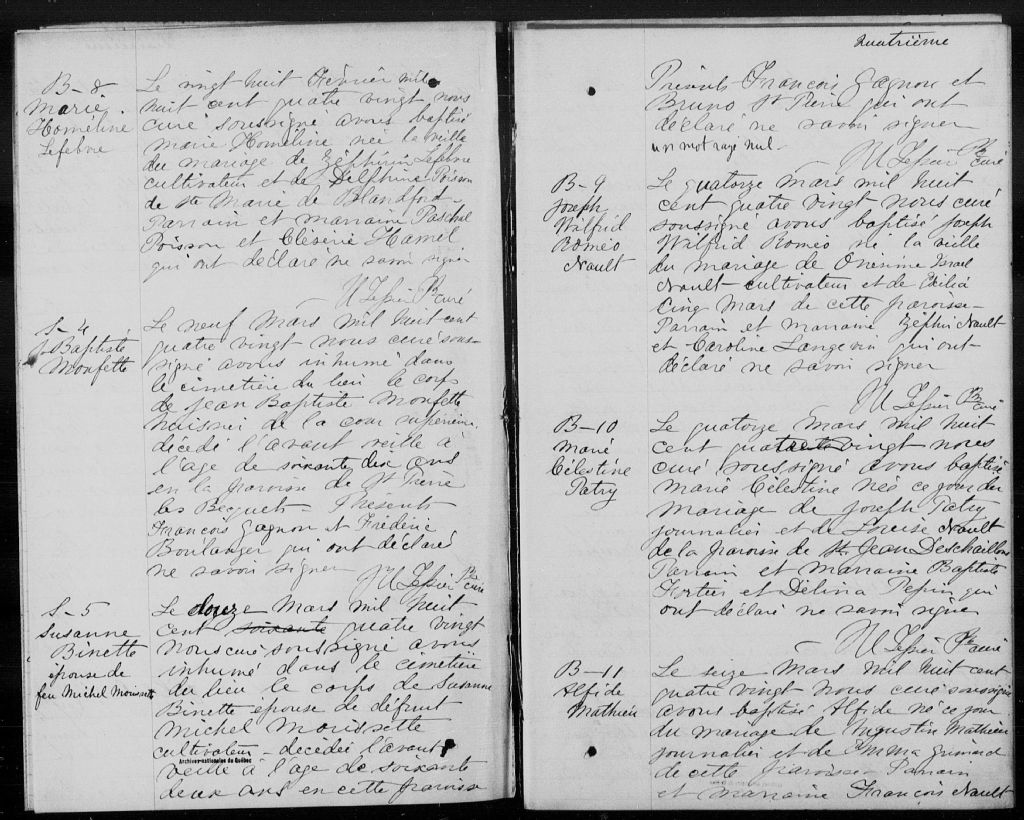 B-8
Marie
Homéline
Lefebvre
Le vingt huit Février mil
huit cent quatre vingt nous
curé soussigné avons baptisé
Marie Homéline née la veille
du mariage de Zéphirin Lefebvre
cultivateur et de Delphine Poisson
de Ste Marie de Blandford
Parrain et marraine Paschel
Poisson et Elésérie Hamel
qui ont déclaré ne savoir signer
Ptre curé
S-4
J. Baptiste
Monfette
Le neuf Mars mil huit cent
quatre vingt nous curé sous-
signé avons inhumé dans
le cimetière du lieu le corps
de Jean Baptiste Monfette
huissier de la cour supérieure
décédé l'avant veille à
l'age de soixante dix ans
en la paroisse de St Pierre
les Becquets Présents
François Gagnon et Frédéric
Boulanger qui ont déclaré
ne savoir signer
Ptre curé
S-5
Susanne
Binette
épouse de
feu Michel Morissette
Le douze Mars mil huit
cent soixante quatre vingt
nous curé soussigné avons
inhumé dans le cimetière
du lieu le corps de Susanne
Binette épouse de défunt
Michel Morissette
cultivateur - décédée l'avant
Archives nationales du Québec
veille à l'age de soixante
deux ans en cette paroisse
Quatrième
Présents François Gagnon et
Bruno St Pierre qui ont
déclaré ne savoir signer
un mot rayé nul.
Ptre curé
B-9
Joseph
Wilfrid
Roméo
Nault
Le quatorze Mars mil huit
cent quatre vingt nous curé
soussigné avons baptisé Joseph
Wilfrid Roméo né la veille
du mariage de Onésime Israel
Nault cultivateur et de Exilia
Cinq Mars de cette paroisse
Parrain et marraine Zéphir Nault
et Caroline Langevin qui ont
déclaré ne savoir signer
Ptre curé
B-10
Marie
Célestine
Patry
Le quatorze Mars mil huit
cent quatre vingt nous
curé soussigné avons baptisé
Marie Célestine née ce jour du
mariage de Joseph Patry
journalier et de Louise Nault
de la paroisse de St. Jean Deschaillons
Parrain et marraine Baptiste
Fortier et Délina Pepin qui
ont déclaré ne savoir signer
Ptre curé
B-11
Alfide
Mathieu
Le seize Mars mil huit cent
quatre vingt nous curé soussigné
avons baptisé Alfide né ce jour
du mariage de Augustin Mathieu
journalier et de Emma Grimard
de cette paroisse Parrain
et marraine François Nault